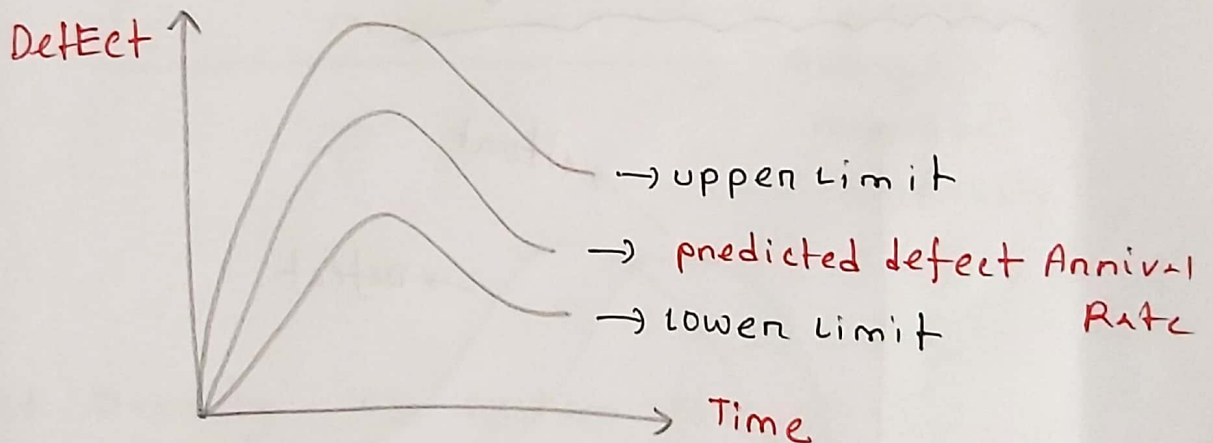 Defect
→ upper Limit
→ predicted defect Arrival
Rate
→ Lower Limit
Time